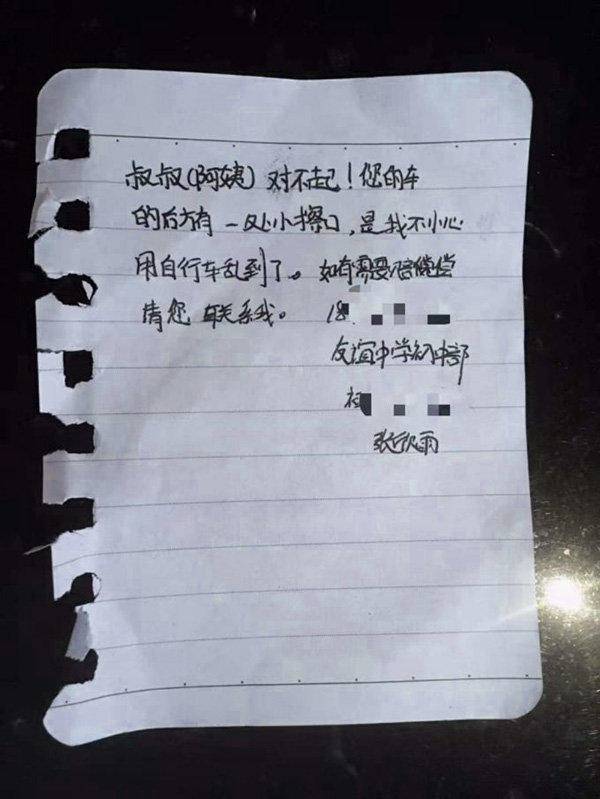 叔叔(阿姨)对不起！您的车
的后方有一处小擦口，是我不小心
用自行车乱到了。如有需要赔偿
请您联系我。18
友谊中学初中部
初
张欣雨